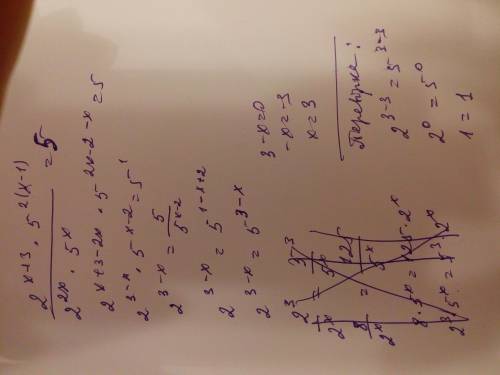 2^{x+3} · 5^{2(x-1)} / 2^{2x} · 5^x = 5
2^{x+3-2x} · 5^{2x-2-x} = 5
2^{3-x} · 5^{x-2} = 5^1
2^{3-x} = 5/5^{x-2}
2^{3-x} = 5^{1-x+2}
2^{3-x} = 5^{3-x}
2^3/2^x = 5^3/5^x
8/2^x = 125/5^x
8 · 5^x = 125 · 2^x
2^3 · 5^x = 5^3 · 2^x
3-x=0
-x=-3
x=3
Перевірка:
2^{3-3} = 5^{3-3}
2^0 = 5^0
1 = 1